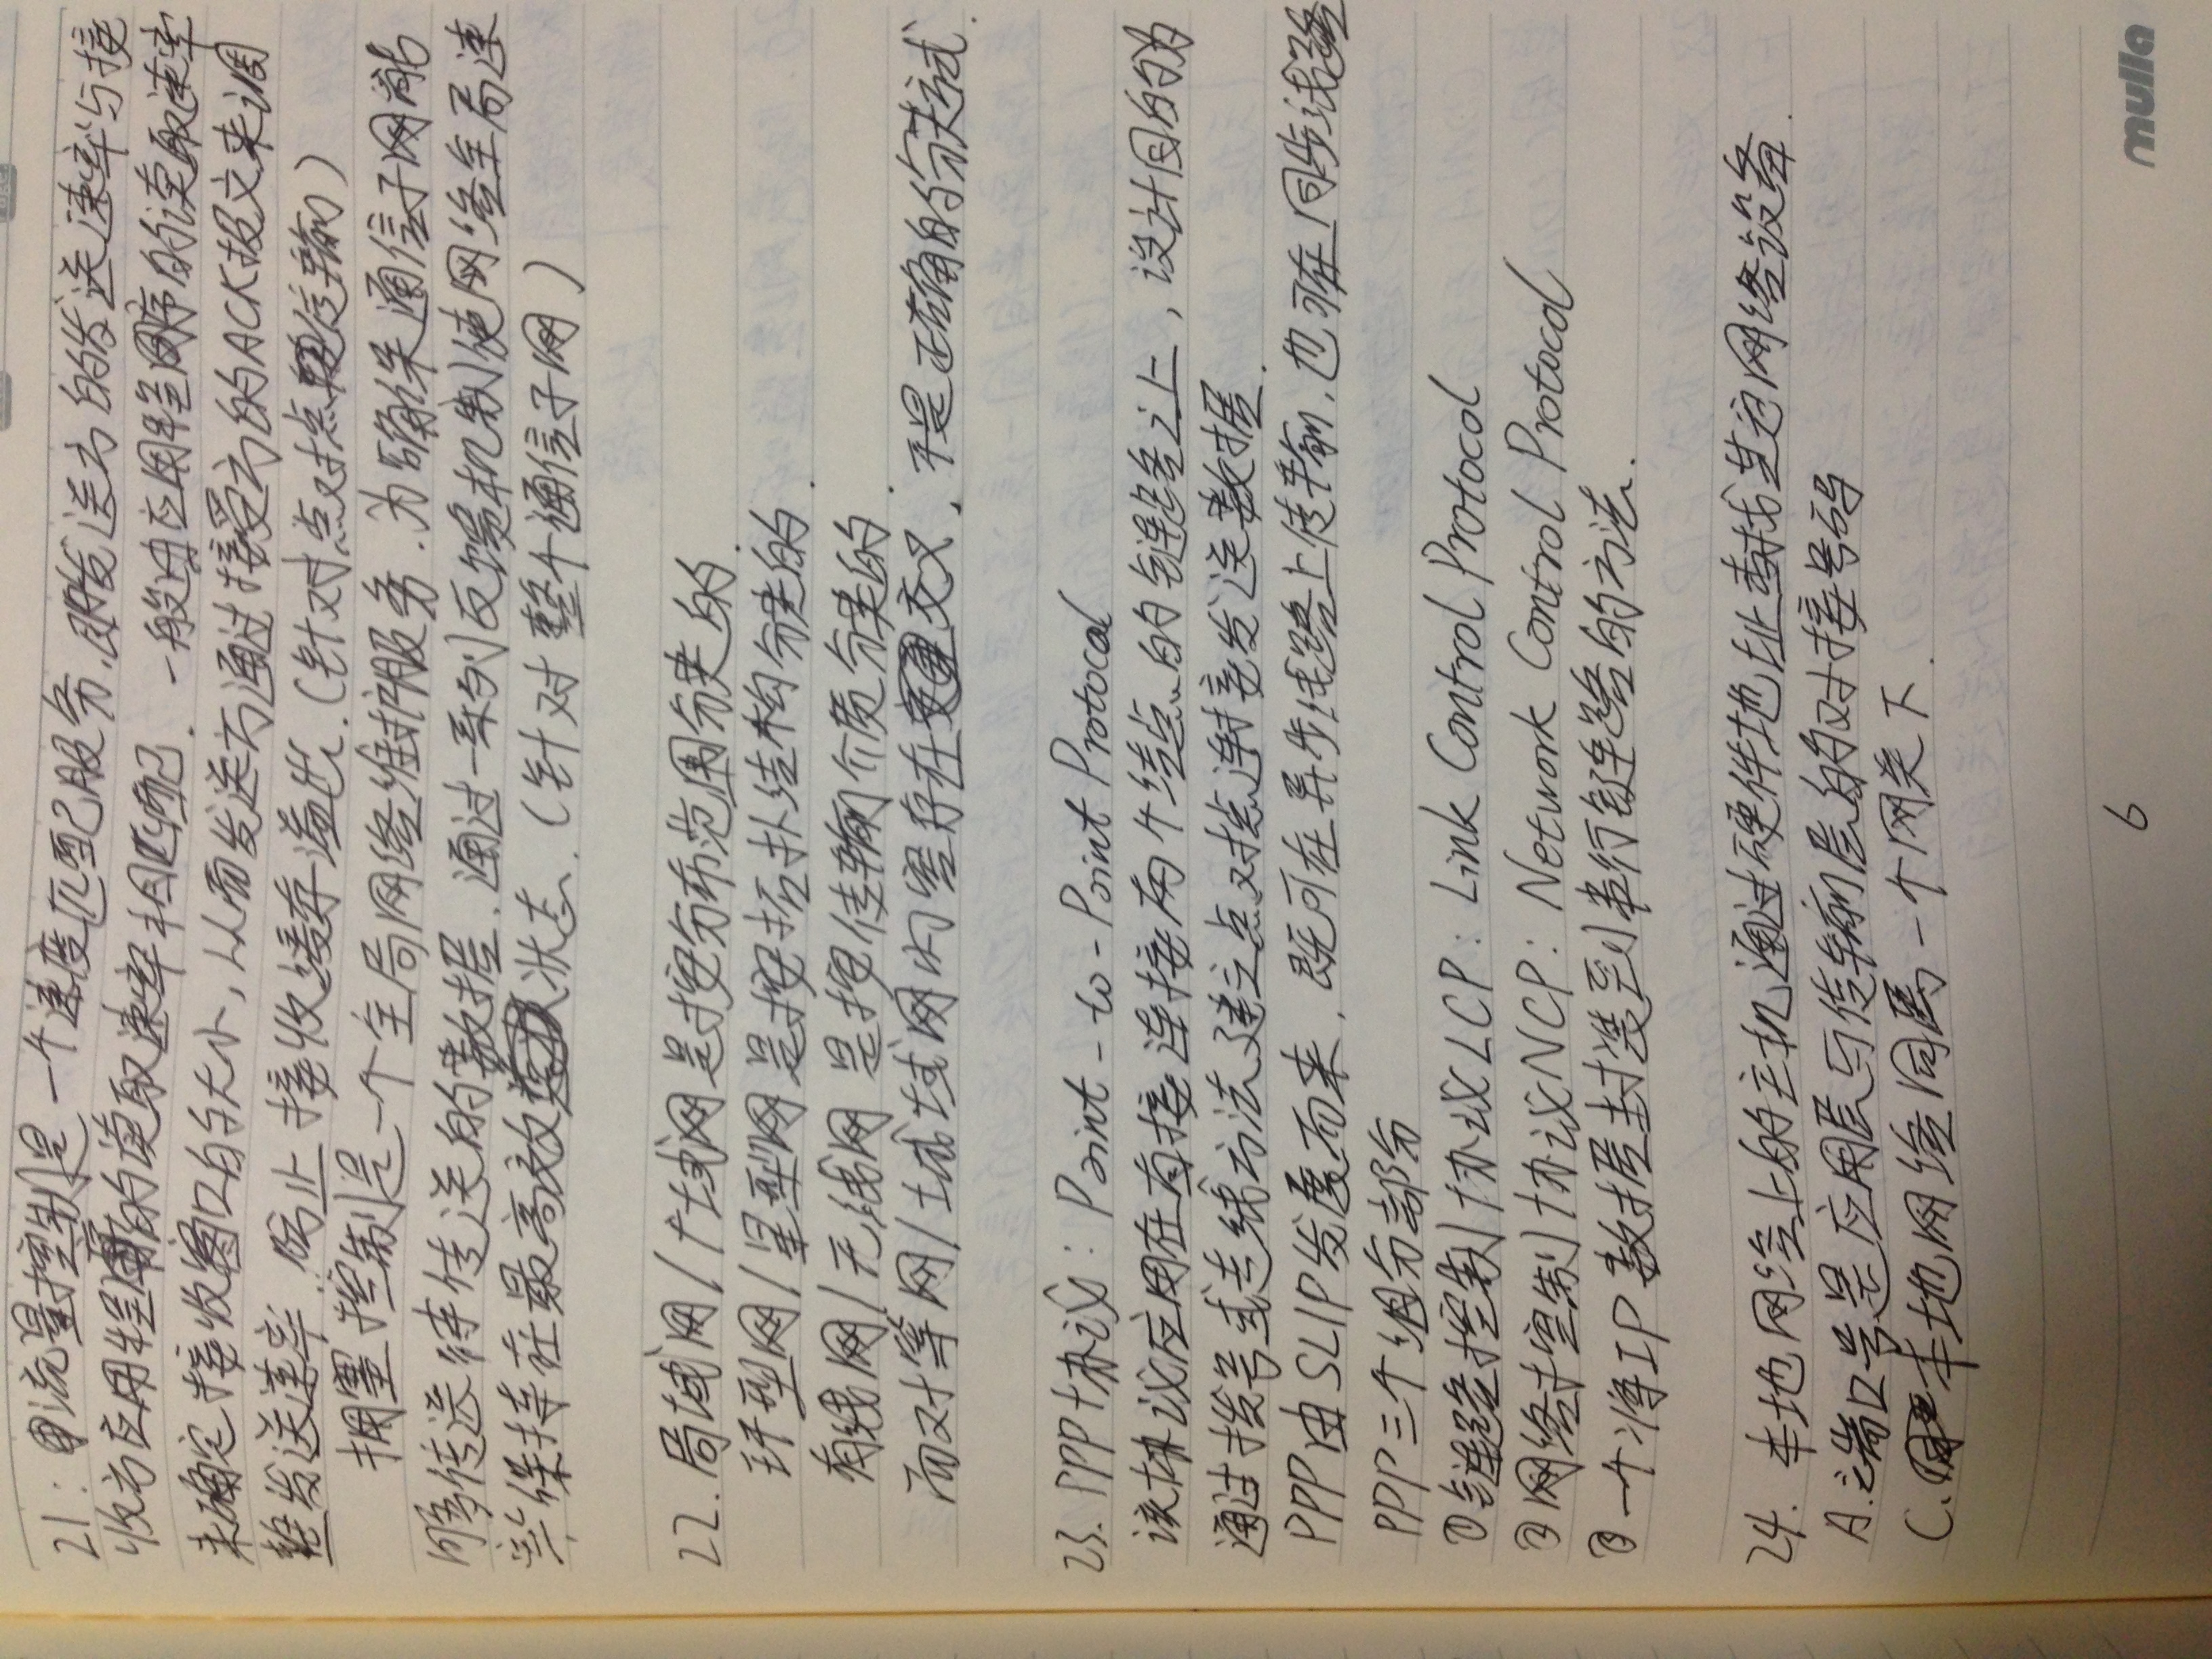 21: 流量控制是一个速度匹配服务.即发送方的发送速率与接
收方应用程序的读取速率相匹配. 一般由应用程序的读取速率
来确定接收窗口的大小,从而发送方通过接受方的ACK报文来调
整发送速率.防止接收缓存溢出.(针对点对点传输)
拥塞控制是一个全局网络维护服务.为确保通信子网能
够传送待传送的数据.通过一系列反馈机制使网络全局速
率保持在最高效状态.(针对整个通信子网)
22.局域网/广域网是按分布范围分类的.
环型网/星型网是按拓扑结构分类的.
有线网/无线网 是按传输介质分类的.
而对等网/城域网内容存在交叉,不是正确的分类方式.
23. PPP协议: Point-to-Point Protocol
该协议应用在直接连接两个结点的链路之上,设计目的为
通过拨号或专线方法建立点对点连接发送数据.
PPP由SLIP发展而来.既可在异步线路上传输.也可在同步线路
PPP三个组分部分
①链路控制协议LCP: Link Control Protocol
②网络控制协议NCP: Network Control Protocol
③一个将IP数据封装到串行链路的方法.
24. 本地网络上的主机通过硬件地址查找其它网络设备.
A.端口号是应用层与传输层的对接号码
C.本地网络同属一个网关下.
6
mulla